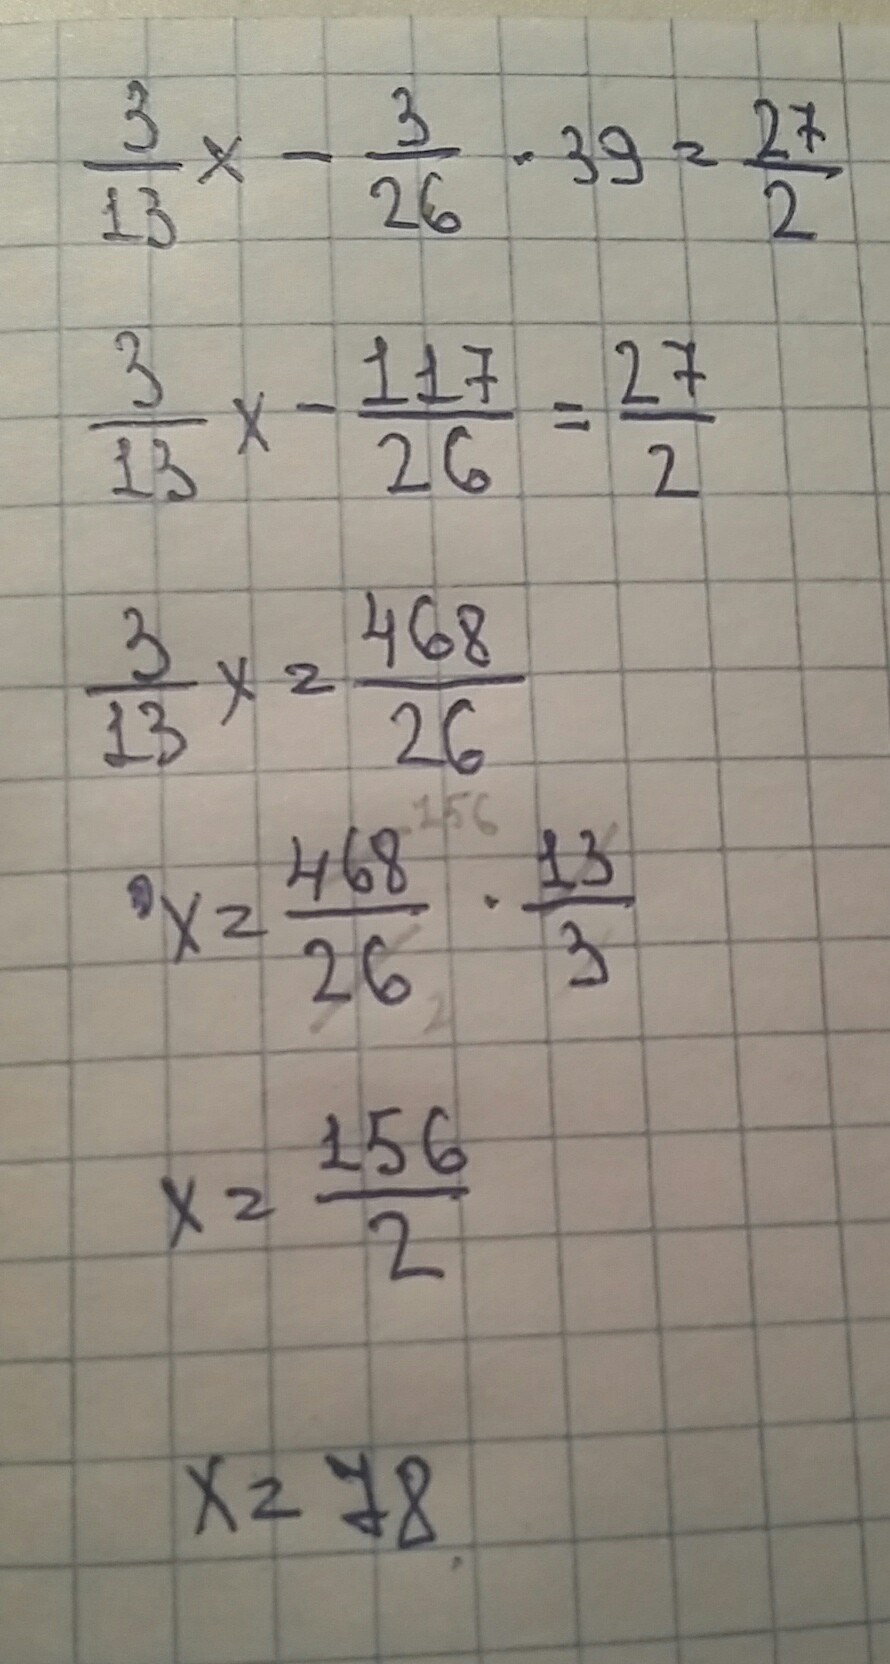 3/13 x - 3/26 · 39 = 27/2
3/13 x - 117/26 = 27/2
3/13 x = 468/26
156
x = 468/26 · 13/3
2
x = 156/2
x = 78